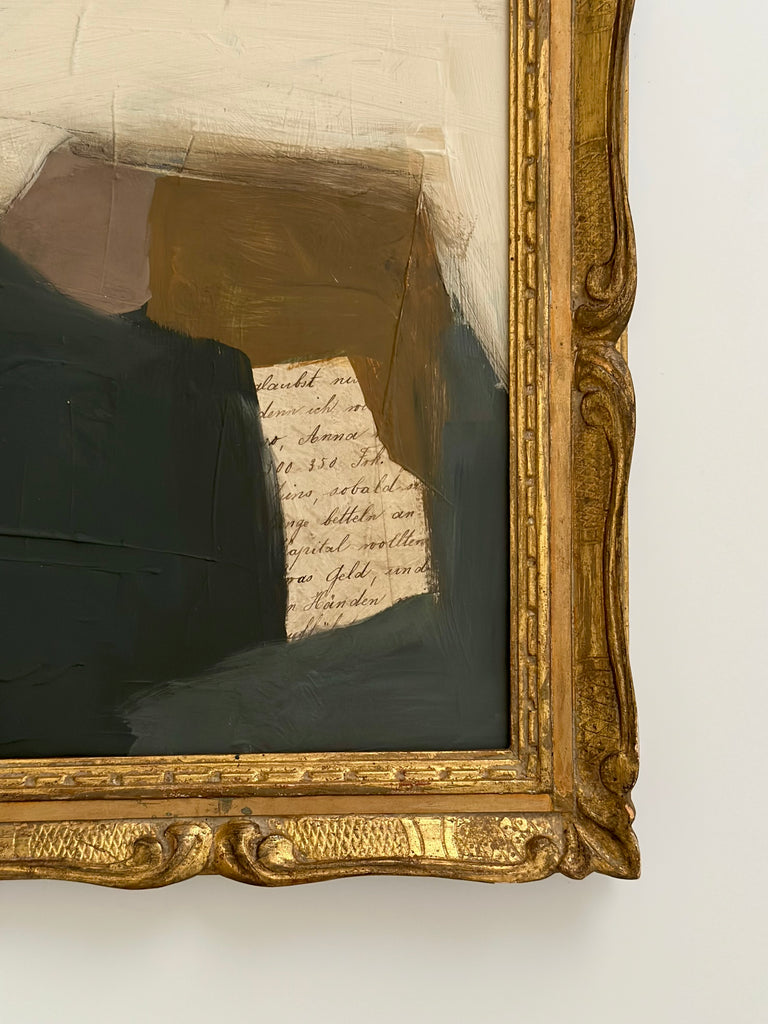 glaubst nu
denn ich wo
, Anna
00 350 Frk.
eins, sobald s
nge betteln an
apital wollten
was Geld, und
n Händen